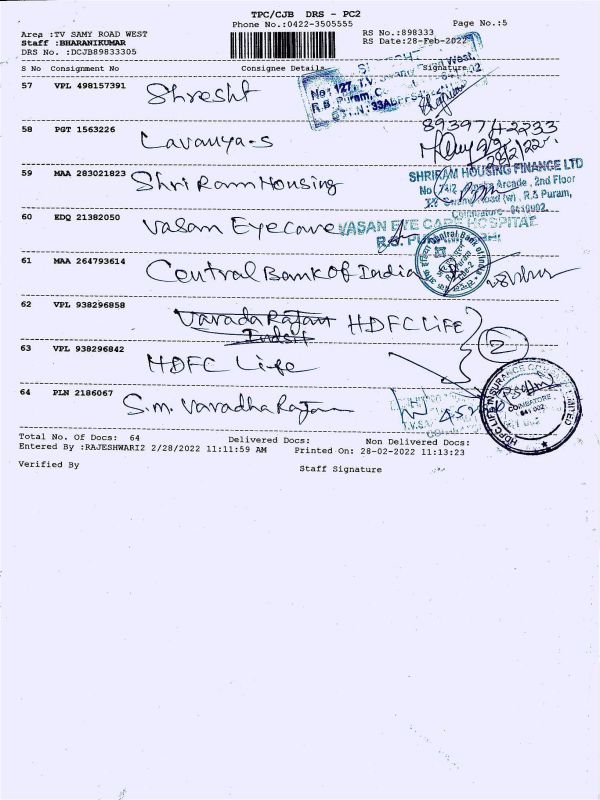 TPC/CJB DRS - PC2
Phone No.:0422-3505555
Page No.:5
Area :TV SAMY ROAD WEST
Staff :BHARANIKUMAR
DRS No. :DCJB89833305
RS No.:898333
RS Date:28-Feb-2022
S No Consignment No Consignee Details Signature
57 VPL 498157391 Shresht
No 127, T.V.
R.S. Puram,
58 PGT 1563226 Lavanya-s
8939742233
28/2/22
59 MAA 283021823 Shri Ram Housing
SHRIRAM HOUSING FINANCE LTD
Arcade, 2nd Floor
Road (w), R.S Puram,
Coimbatore
60 EDQ 21382050 Vasan Eye care
VASAN EYE CARE HOSPITAL
61 MAA 264793614 Central Bank Of India
62 VPL 938296858 Varada Rajan HDFC LIFE
2
63 VPL 938296842 HDFC Life
64 PLN 2186067 S.m. Varadha Rajan
COIMBATORE
641 002
Total No. Of Docs: 64 Delivered Docs: Non Delivered Docs:
Entered By :RAJESHWARI2 2/28/2022 11:11:59 AM Printed On: 28-02-2022 11:13:23
Verified By Staff Signature